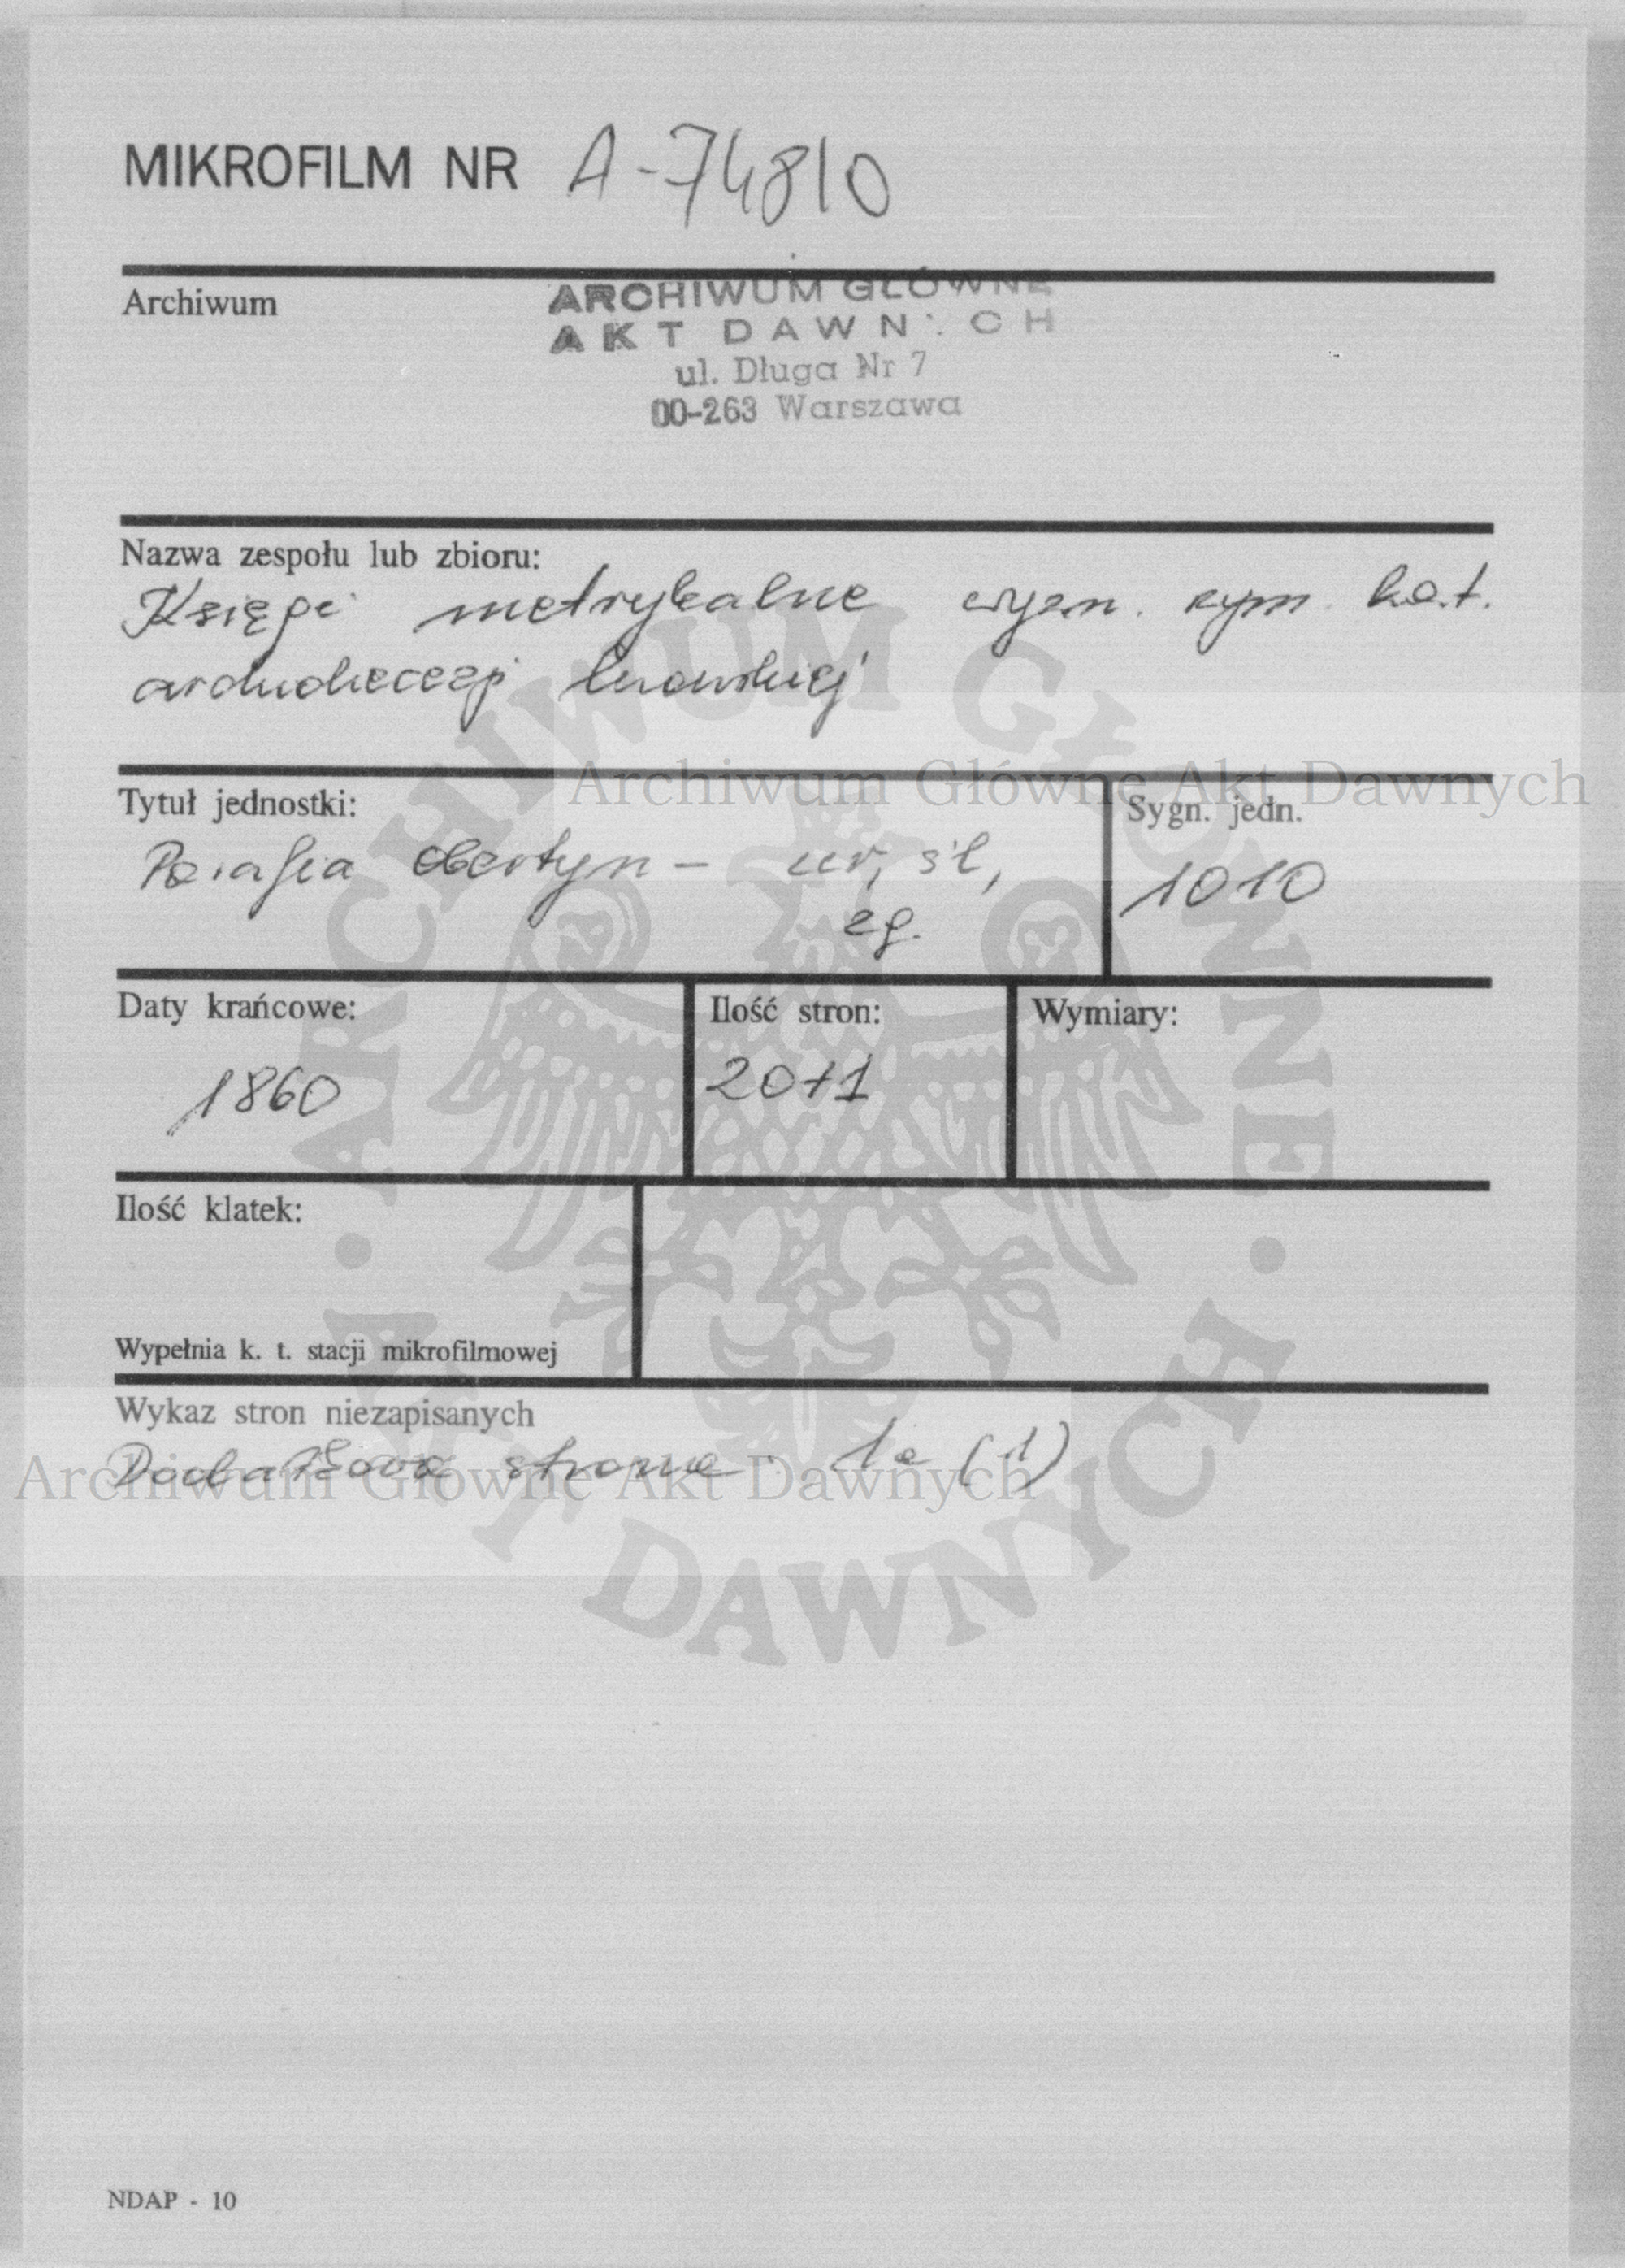 MIKROFILM NR A-74810
Archiwum
ARCHIWUM GŁÓWNE
AKT DAWNYCH
ul. Długa Nr 7
00-263 Warszawa
Nazwa zespołu lub zbioru:
Księgi metrykalne wyzn. rzym. kat.
archidiecezji lwowskiej
Archiwum Główne Akt Dawnych
Tytuł jednostki:
Parafia Obertyn - ur, śl,
zg.
Sygn. jedn.
1010
Daty krańcowe:
1860
Ilość stron:
20+1
Wymiary:
Ilość klatek:
Wypełnia k. t. stacji mikrofilmowej
Wykaz stron niezapisanych
Dodatkowa strona: 1a (1)
Archiwum Główne Akt Dawnych
ARCHIWUM GŁÓWNE · AKT DAWNYCH ·
NDAP - 10